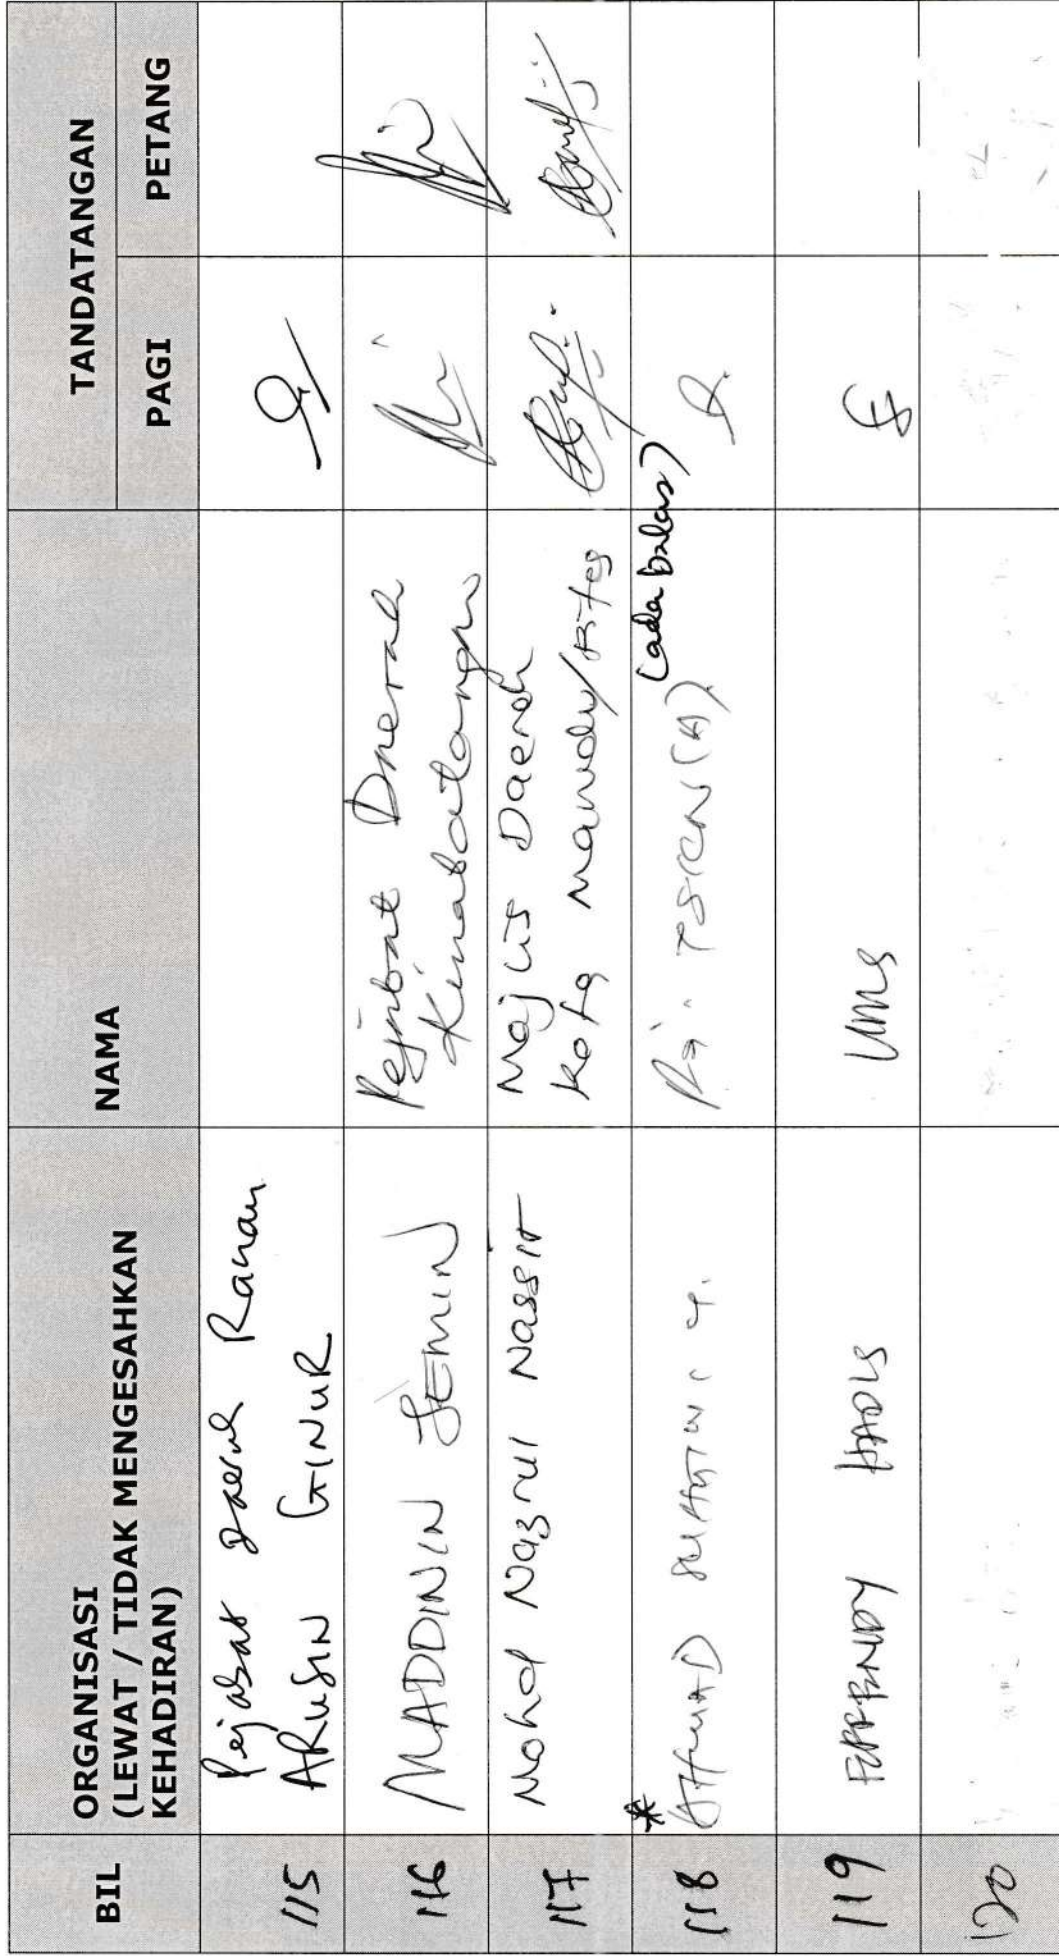 BIL
ORGANISASI
(LEWAT / TIDAK MENGESAHKAN
KEHADIRAN)
NAMA
TANDATANGAN
PAGI
PETANG
115
Pejabat Daerah Ranau
ARUSIN GINUR
116
MADDININ JEMIN
Pejabat Daerah
Kinabatangan
117
Mohd Nazrul Nassir
Majlis Daerah
Kota Marudu/Pitas
118
*
AHMAD
(ada balas)
119
UMS
120